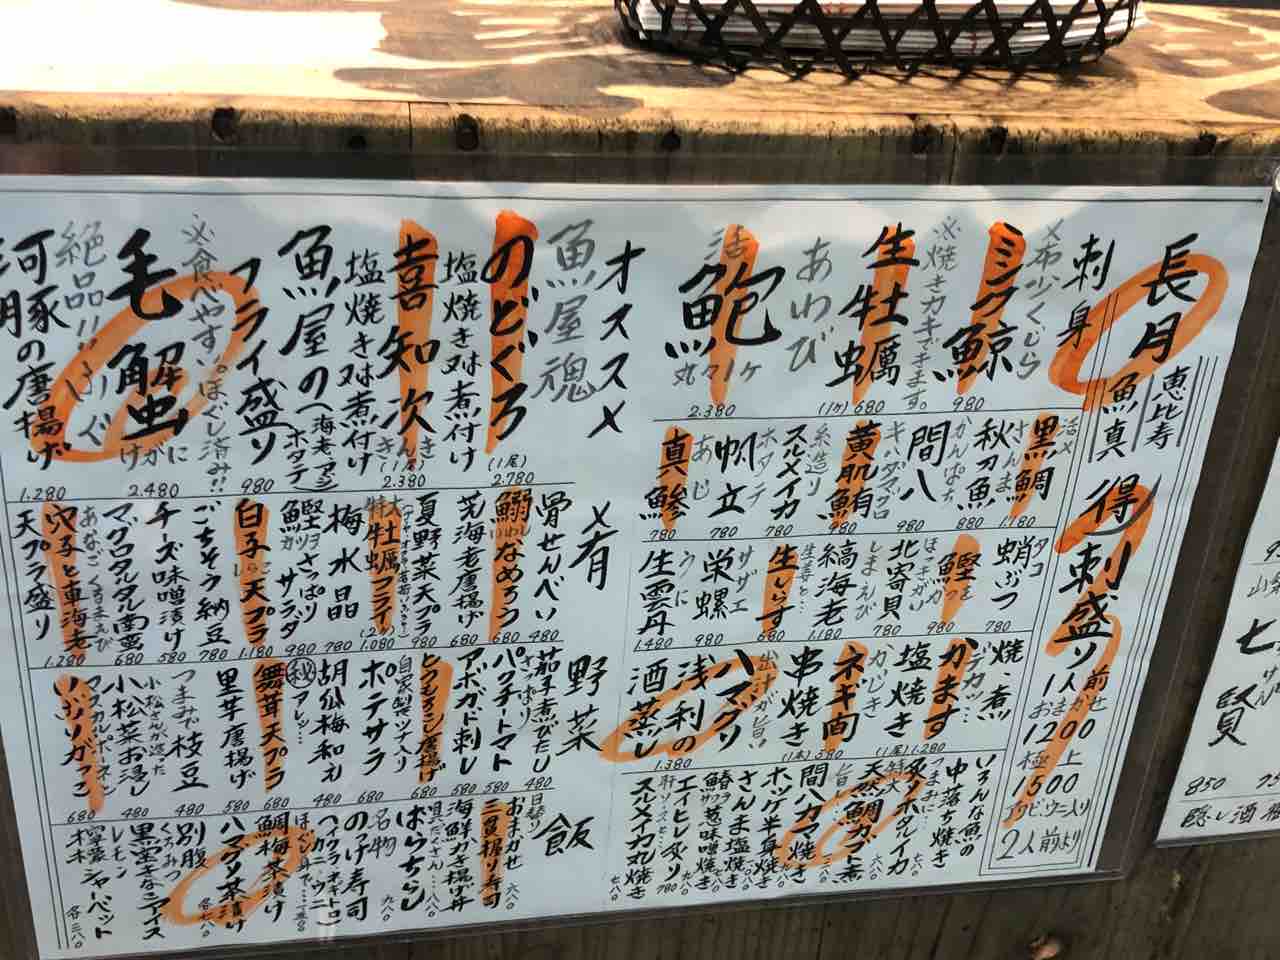 長月
恵比寿
魚真
得刺盛り
1人前
おまかせ
1200
極上
1500
アワビ、ウニ入り
2人前より
刺身
〆希少くじら
ミンク鯨
980
※焼きカキできます。
生牡蠣
(1ケ) 680
あわび
活
鮑
丸々1ケ
2.380
活〆
黒鯛
1.180
さんま
秋刀魚
880
かんぱち
間八
980
キハダマグロ
黄肌鮪
980
糸造り
スルメイカ
780
ホタテ
帆立
780
あじ
真鯵
780
タコ
蛸ぶつ
780
鰹
980
ほっきがい
北寄貝
780
しまえび
縞海老
生しらす
680
サザエ
栄螺
980
うに
生雲丹
1.480
焼・煮
デカッ…
かます
塩焼き
(1尾) 1.280
かじき
ネギ間
串焼き
(1本) 580
出汁が旨い
ハマグリ
浅利の
酒蒸し
1.380
いろんな魚の
中落ち焼き
つまみに…
炙りホタルイカ
天然鯛カブト煮
間八カマ焼き
ホッケ半身焼き
さんま塩焼き
エイヒレ炙り
780
スルメイカ丸焼き
オススメ
魚屋魂
のどぐろ
塩焼き又は煮付け
(1尾)
2.780
喜知次
きんき
塩焼き又は煮付け
(1尾)
2.380
魚屋の
フライ盛り
980
※食べやすい。ほぐし済み!!
毛蟹
けがに
2.480
絶品!!
河豚の唐揚げ
1.280
〆肴
骨せんべい
480
鰯なめろう
680
芝海老唐揚げ
680
夏野菜天プラ
980
特大
牡蠣フライ
(2ケ)
1.080
梅水晶
780
鰹さっぱり
サラダ
980
白子天プラ
1.180
ごちそう納豆
780
チーズ味噌漬け
580
マグロタルタル南蛮
680
あなごくるまえび
穴子と車海老
天プラ盛り
1.280
野菜
茄子煮びたし
480
さっぱり
パクチートマト
580
アボガド刺し
580
とうもろこし唐揚げ
680
自家製ツナ入り
ポテサラ
680
胡瓜梅和え
480
㊙アレ…
舞茸天プラ
680
里芋唐揚げ
580
つまみで枝豆
480
小松さんが造った
小松菜お浸し
480
マスカルポーネン
いぶりガッコ
680
飯
日替り
おまかせ
三貫握り寿司
海鮮かき揚げ丼
具だくさん
ばらちらし
名物
のっけ寿司
鯛梅茶漬け
ハマグリ茶漬け
別腹
くろみつ
黒蜜きなこアイス
レモン
檸檬シャーベット
850
隠し酒